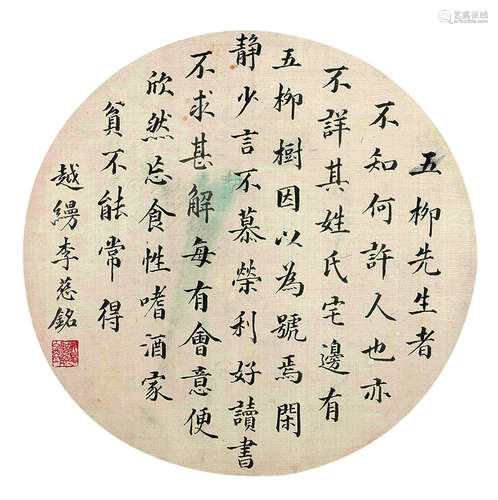 五柳先生者
不知何許人也亦
不詳其姓氏宅邊有
五柳樹因以為號焉閑
静少言不慕榮利好讀書
不求甚解每有會意便
欣然忘食性嗜酒家
貧不能常得
越縵李慈銘